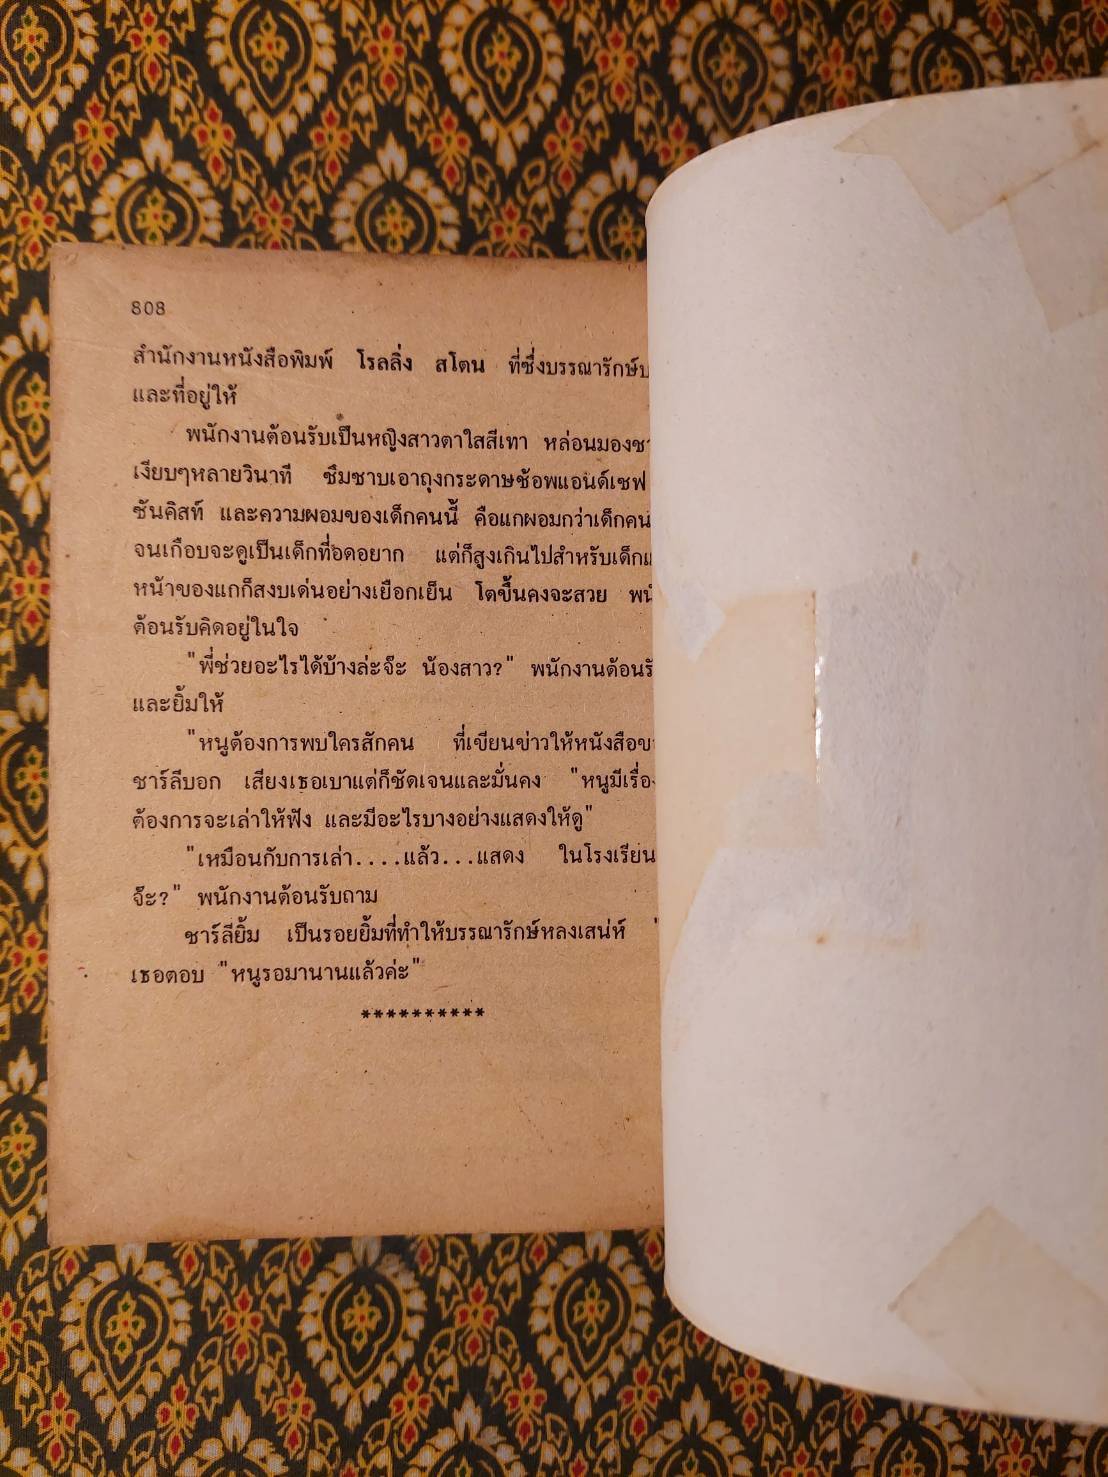 808
สำนักงานหนังสือพิมพ์ โรลลิ่ง สโตน ที่ซึ่งบรรณารักษ์บ
และที่อยู่ให้
พนักงานต้อนรับเป็นหญิงสาวตาใสสีเทา หล่อนมองชา
เงียบๆหลายวินาที ซึมซาบเอาถุงกระดาษช้อพแอนด์เซฟ
ซันคิสท์ และความผอมของเด็กคนนี้ คือแกผอมกว่าเด็กคน
จนเกือบจะดูเป็นเด็กที่อดอยาก แต่ก็สูงเกินไปสำหรับเด็กแ
หน้าของแกก็สงบเด่นอย่างเยือกเย็น โตขึ้นคงจะสวย พนั
ต้อนรับคิดอยู่ในใจ
"พี่ช่วยอะไรได้บ้างล่ะจ๊ะ น้องสาว?" พนักงานต้อนรั
และยิ้มให้
"หนูต้องการพบใครสักคน ที่เขียนข่าวให้หนังสือขา
ชาร์ลีบอก เสียงเธอเบาแต่ก็ชัดเจนและมั่นคง "หนูมีเรื่อง
ต้องการจะเล่าให้ฟัง และมีอะไรบางอย่างแสดงให้ดู"
"เหมือนกับการเล่า....แล้ว...แสดง ในโรงเรียน
จ๊ะ?" พนักงานต้อนรับถาม
ชาร์ลียิ้ม เป็นรอยยิ้มที่ทำให้บรรณารักษ์หลงเสน่ห์ "
เธอตอบ "หนูรอมานานแล้วค่ะ"
**********